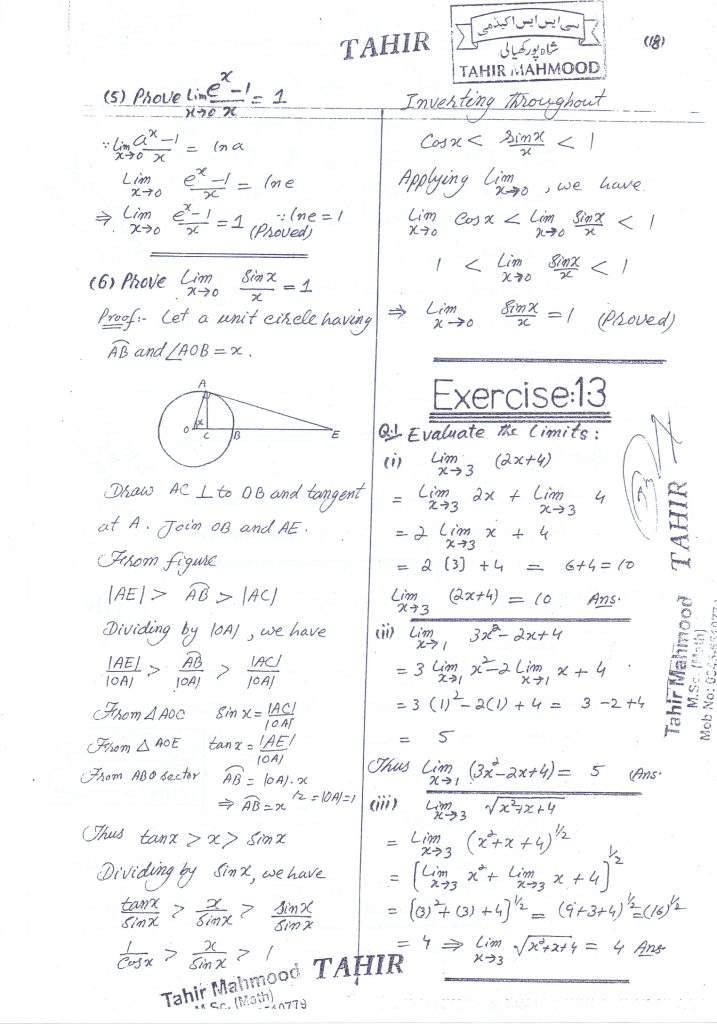 TAHIR
سی ایس ایس اکیڈمی
شاہ پور کھیالی
TAHIR MAHMOOD
(18)
(5) Prove Lim x→0 (e^x − 1)/x = 1
∵ Lim x→0 (a^x − 1)/x = ln a
Lim x→0 (e^x − 1)/x = ln e
⇒ Lim x→0 (e^x − 1)/x = 1 ∵ ln e = 1
(Proved)
(6) Prove Lim x→0 Sinx/x = 1
Proof:- Let a unit circle having
A͡B and ∠AOB = x.
A
O x C B E
Draw AC ⊥ to OB and tangent
at A. Join OB and AE.
From figure
|AE| > A͡B > |AC|
Dividing by |OA|, we have
|AE|/|OA| > A͡B/|OA| > |AC|/|OA|
From △AOC Sinx = |AC|/|OA|
From △AOE tanx = |AE|/|OA|
From ABO sector A͡B = |OA|.x
⇒ A͡B = x ∵ r = |OA| = 1
Thus tanx > x > Sinx
Dividing by Sinx, we have
tanx/Sinx > x/Sinx > Sinx/Sinx
1/Cosx > x/Sinx > 1
Inverting throughout
Cosx < Sinx/x < 1
Applying Lim x→0, we have
Lim x→0 Cosx < Lim x→0 Sinx/x < 1
1 < Lim x→0 Sinx/x < 1
⇒ Lim x→0 Sinx/x = 1 (Proved)
Exercise:13
Q.1 Evaluate the limits:
(i) Lim x→3 (2x+4)
= Lim x→3 2x + Lim x→3 4
= 2 Lim x→3 x + 4
= 2 [3] + 4 = 6+4 = 10
Lim x→3 (2x+4) = 10 Ans.
(ii) Lim x→1 3x² − 2x + 4
= 3 Lim x→1 x² − 2 Lim x→1 x + 4
= 3 (1)² − 2(1) + 4 = 3 − 2 + 4
= 5
Thus Lim x→1 (3x² − 2x + 4) = 5 (Ans.
(iii) Lim x→3 √(x²+x+4)
= Lim x→3 (x²+x+4)^1/2
= [Lim x→3 x² + Lim x→3 x + 4]^1/2
= [(3)² + (3) + 4]^1/2 = (9+3+4)^1/2 = (16)^1/2
= 4 ⇒ Lim x→3 √(x²+x+4) = 4 Ans
TAHIR
Tahir Mahmood
M.Sc. (Math)
Mob No:
Tahir Mahmood
M.Sc. (Math)
TAHIR